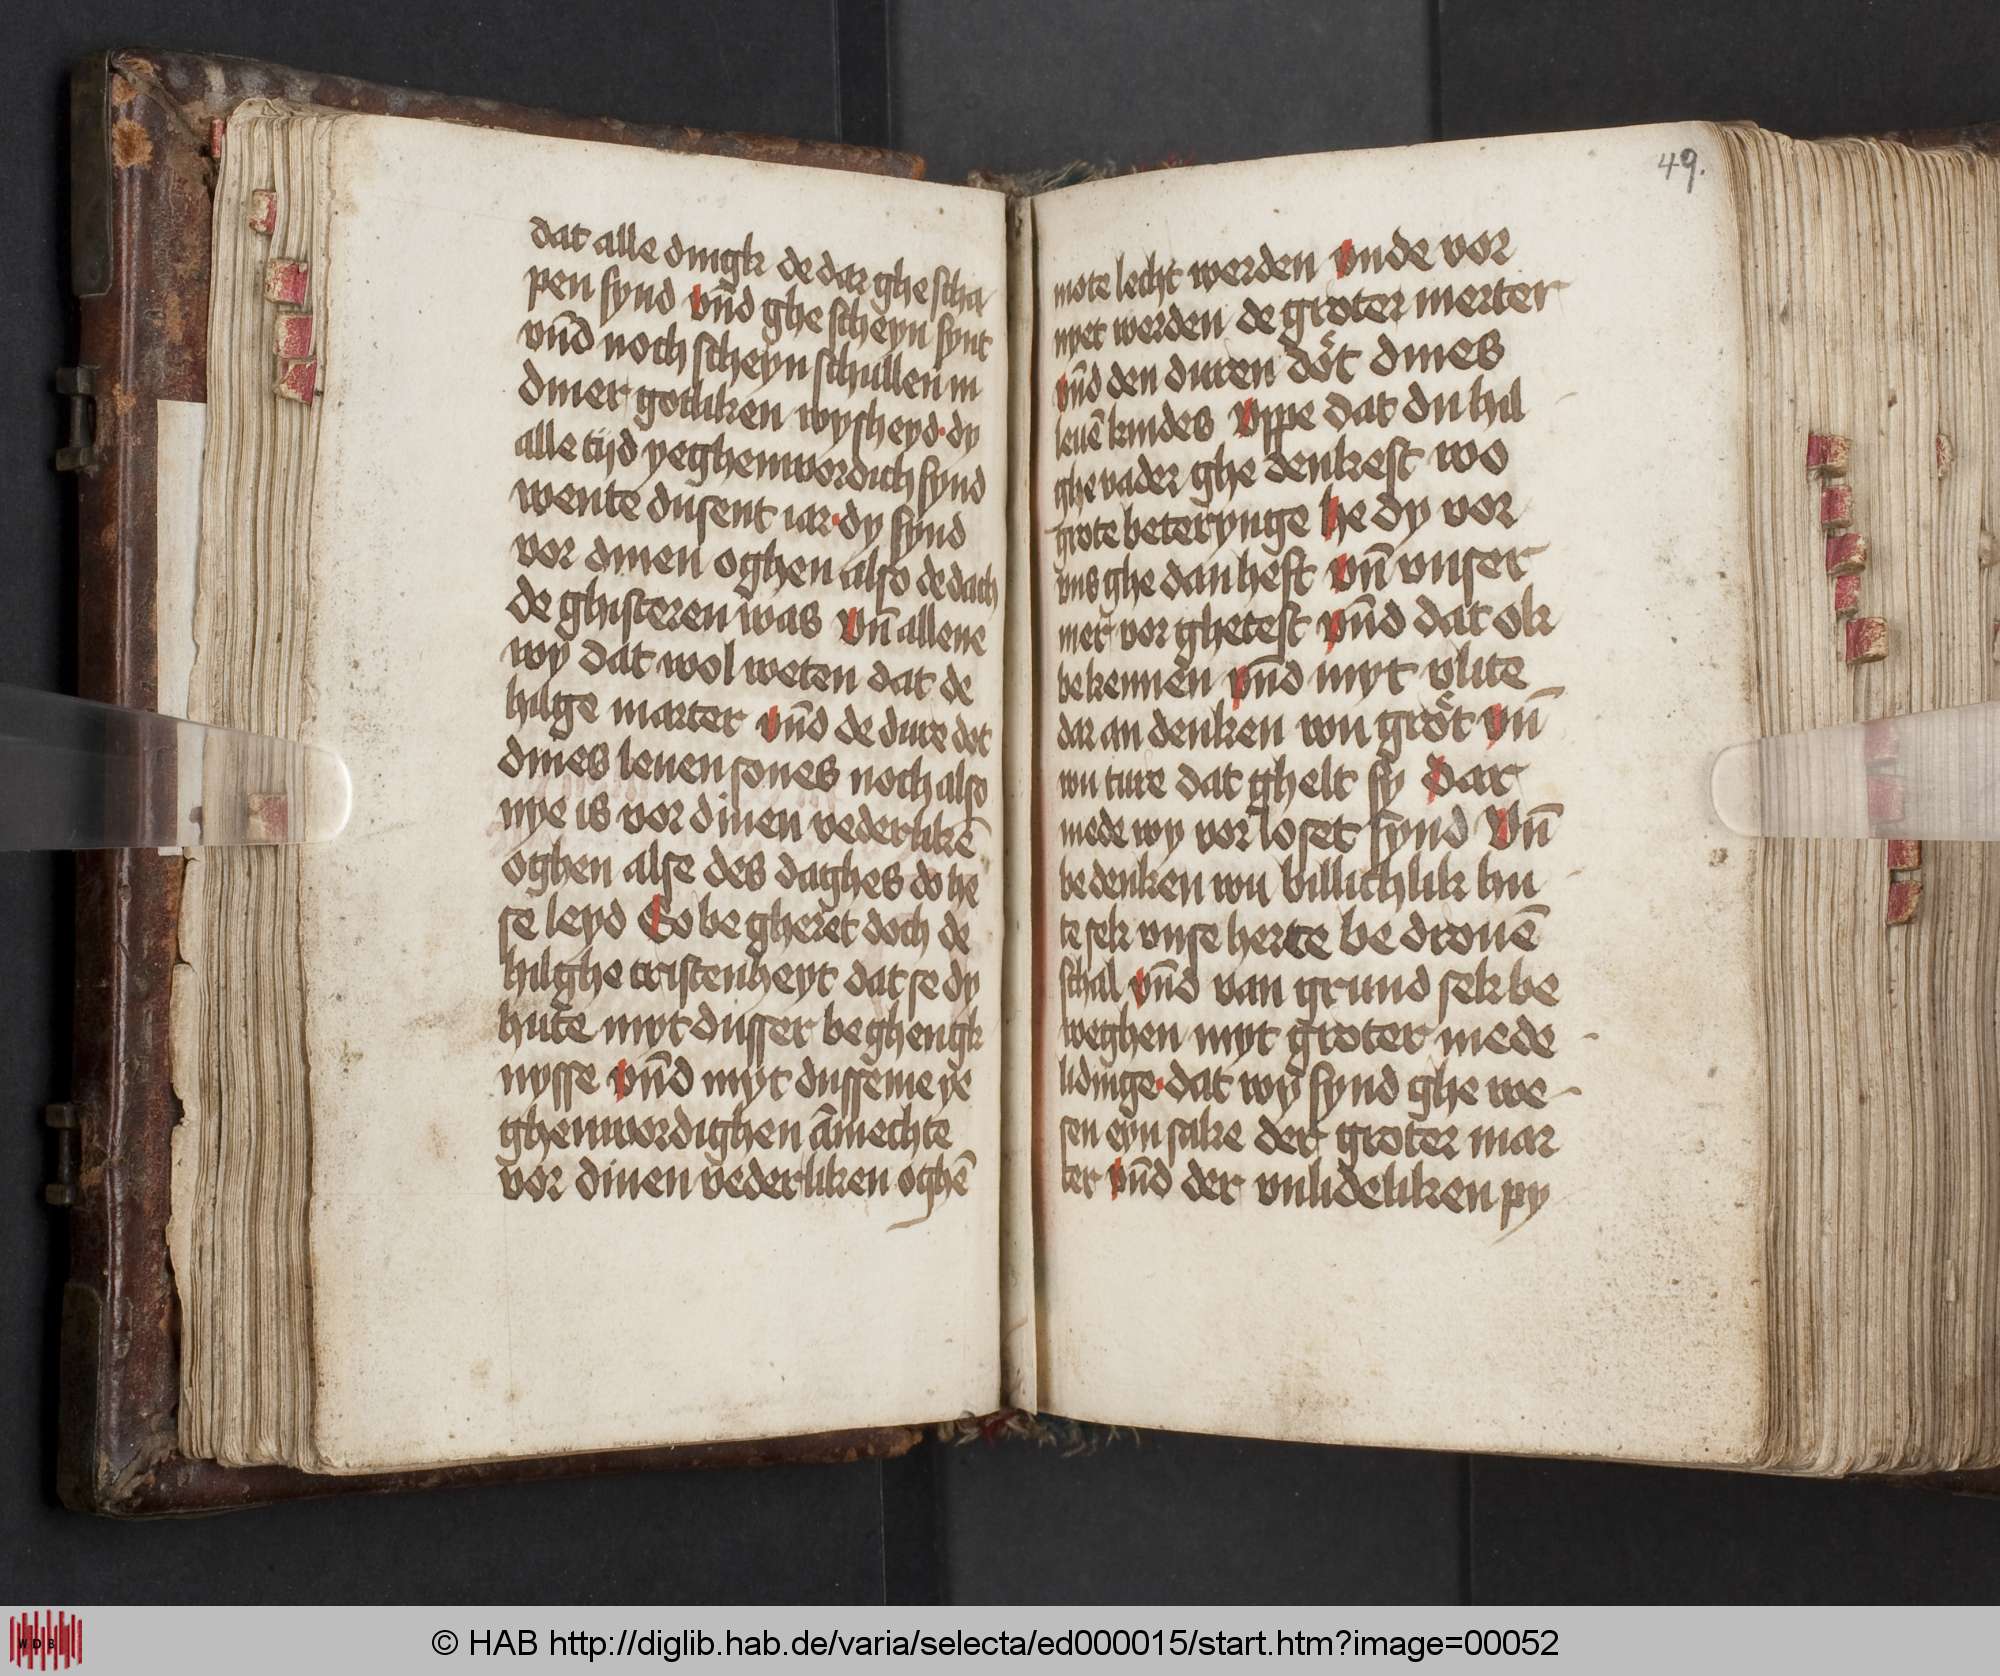 dat alle dingk de dar ghe scha
pen synd vn̄d ghe scheyn synt
vn̄d noch scheyn schullen in
diner gotliken wysheyd · dy
alle tijd yeghenwordich synd
wente dusent iar · dy synd
vor dinen oghen also de dach
de ghisteren was Vn̄ allene
wy dat wol weten dat de
hilge marter vn̄d de dure dot
dines leuen sones noch also
nye is vor dinen vederlikē
oghen alse des daghes do he
se leyd So be gheret doch de
hilghe cristenheyt dat se dy
hute myt dusser be ghengk
nysse vn̄d myt dusseme ye
ghenwordighen āmechte
vor dinen vederliken oghē
49.
mote lecht werden vnde vor
nyet werden de groter merter
vn̄d den duren döt dines
leuē kindes Vppe dat du hil
ghe vader ghe denkest wo
grote beterynge he dy vor
vns ghe dan heft vn̄ vnser
mer vor ghetest vn̄d dat ok
bekennen vn̄d myt vlite
dar an denken wu gröt vn̄
wu ture dat ghelt sy dar
mede wy vor loset synd Vn̄
be denken wu billichlik hu
te sek vnse herte be drouē
schal vn̄d van grund sek be
weghen myt groter mede
lidinge · dat wy synd ghe we
sen eyn sake der groter mar
ter vn̄d der vnlideliken py
WDB
© HAB http://diglib.hab.de/varia/selecta/ed000015/start.htm?image=00052